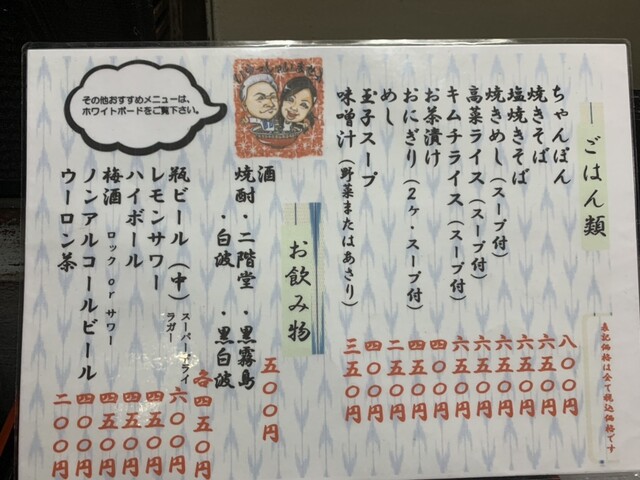 表記価格は全て税込価格です
ごはん類
ちゃんぽん 八〇〇円
焼きそば 六五〇円
塩焼きそば 六五〇円
焼きめし(スープ付) 六五〇円
高菜ライス(スープ付) 六五〇円
キムチライス(スープ付) 六五〇円
お茶漬け 四五〇円
おにぎり(2ヶ・スープ付) 四〇〇円
めし 二五〇円
玉子スープ 四〇〇円
味噌汁(野菜またはあさり) 三五〇円
お飲み物
酒 五〇〇円
焼酎・二階堂・黒霧島
・白波・黒白波 各四五〇円
瓶ビール(中) スーパードライ ラガー 六〇〇円
レモンサワー 四五〇円
ハイボール 四五〇円
梅酒 ロック or サワー 四五〇円
ノンアルコールビール 四〇〇円
ウーロン茶 二〇〇円
その他おすすめメニューは、
ホワイトボードをご覧下さい。